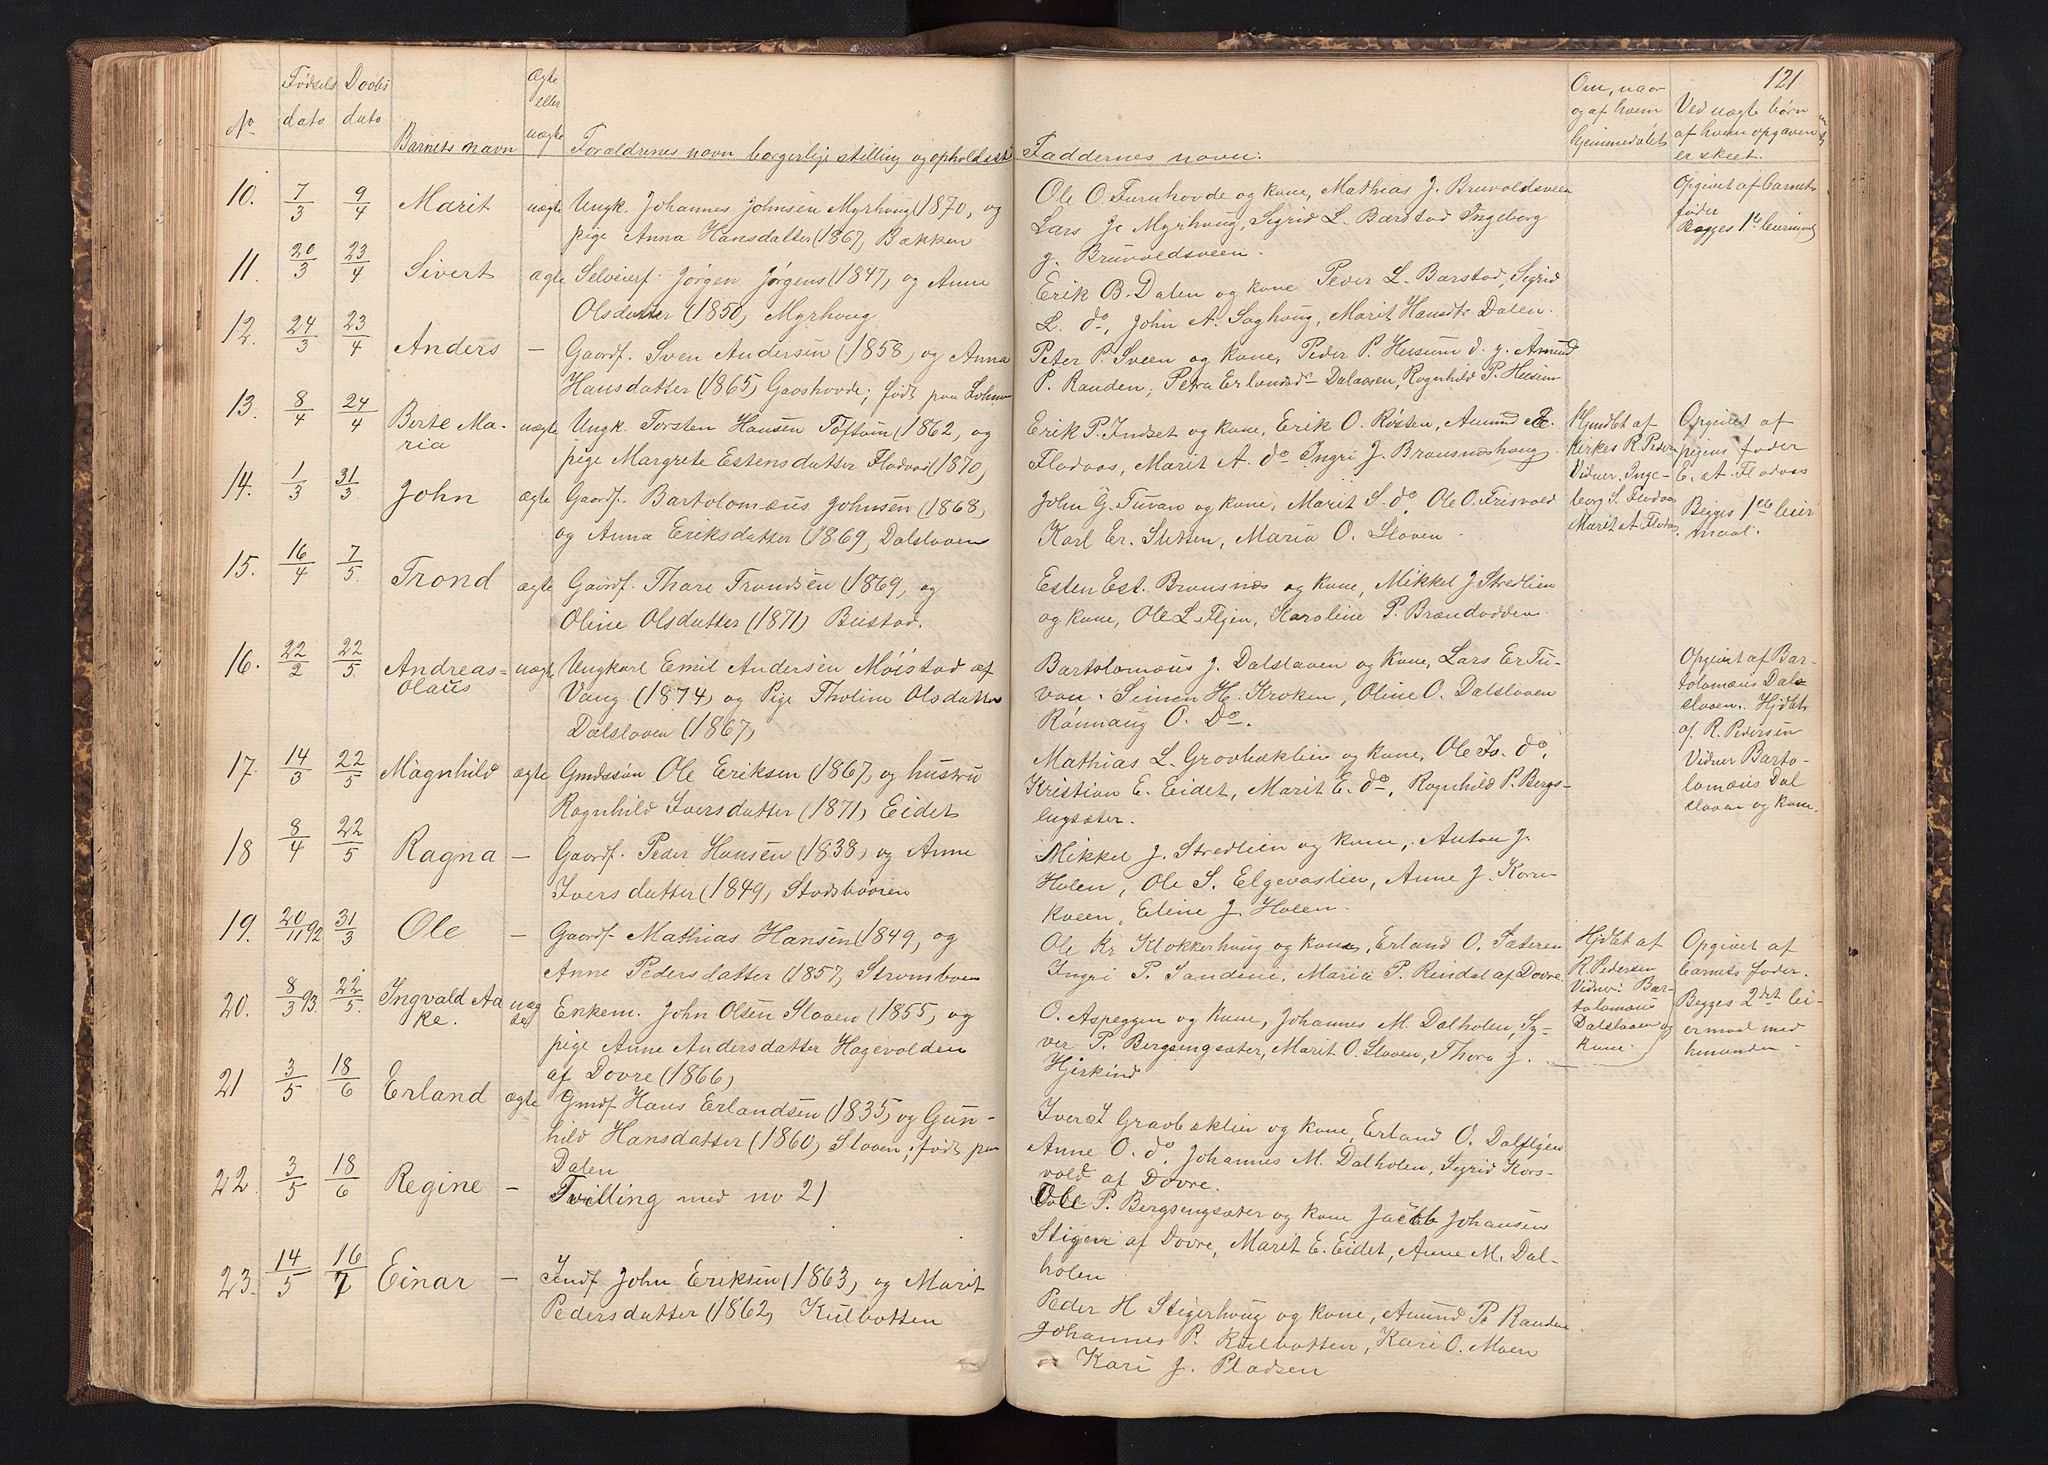 121
No
Fødsels dato
Daabs dato
Barnets navn
Ægte eller uægte
Forældrenes navn borgerlige stilling og opholdsst
Faddernes navn:
Om, naar og af hvem hjemmedøbt
Ved uægte børn af hvem opgaven er skeet.
10. 7/3 9/4 Marit uægte Ungk. Johannes Johnsen Myrhoug (1870, og
pige Anna Hansdatter (1867, Bækken
Ole O. Furuhovde og kone, Mathias J. Bruvoldsveen
Lars J. Myrhoug, Sigrid L. Barstad Ingeborg
J. Bruvoldsveen.
Opgivet af barnets
fader
Begges 1ste leiermaal
11. 20/3 23/4 Sivert ægte Selveierf. Jørgen Jørgens (1847, og Anne
Olsdatter (1850, Myrhoug
Erik B. Dalen og kone Peder L. Barstad, Sigrid
L. do, John A. Saghoug, Marit Hansdt. Dalen.
12. 24/3 23/4 Anders — Gaardf. Sven Andersen (1858 og Anna
Hansdatter (1865, Gaashovde; født paa
Peter P. Sveen og kone, Peder P. Husum d. y. Amund
P. Randen, Petra Erlandsd. Dalaasen, Ragnhild P. Husum
13. 8/4 24/4 Berte Ma-
ria uægte Ungk. Torsten Hansen Toftum (1862, og
pige Margrete Estensdatter Fladvad (1870,
Erik P. Indset og kone, Erik O. Røsten, Amund
Fladvas, Marit A. do Ingri J. Bruusneshoug
Hjmdbt af
Kirkes. R. Peder
Vidner. Inge-
borg S. Fladvas
Marit A. Fladvas.
Opgivet af
pigens fader
E. A. Fladvas
Begges 1ste leier
maal.
14. 1/3 31/3 John ægte Gaardf. Bartolomæus Johnsen (1868,
og Anna Eriksdatter (1869, Dalslaaen
John G. Tuvan og kone, Marit S. do, Ole O. Frisvold
Karl Er. Sletten, Maria O. Slaaen.
15. 16/4 7/5 Trond ægte Gaardf. Thare Trondsen (1869, og
Oline Olsdatter (1871) Bustad.
Esten Est. Bruusnæs og kone, Mikkel J. Stredlien
og kone, Ole L. Fljen, Karoline P. Brændodden.
16. 22/2 22/5 Andreas-
Olaus uægte Ungkarl Emil Andersen Moistad af
Vang (1874) og Pige Tholine Olsdatter
Dalslaaen (1867,
Bartolomæus J. Dalslaaen og kone, Lars Er Tu-
van. Simen H. Kroken, Oline O. Dalslaaen
Rønnaug O. Do.
Opgivet af Bar-
tolomæus Dal-
slaaen. Hjdbt
af R. Pedersen
Vidner Barto-
lomæus Dal
slaaen og kone.
17. 14/3 22/5 Magnhild ægte Gmdssøn Ole Eriksen (1867, og hustru
Ragnhild Iversdatter (1871, Eidet
Mathias L. Gravbæklien og kone, Ole Iv. do,
Kristian E. Eidet, Marit E. do, Ragnhild P. Bergs-
engsæter.
18 8/4 22/5 Ragna — Gaardf. Peder Hansen (1838, og Anne
Iversdatter (1849, Stadsbøien
Mikkel J. Stredlien og kone, Anton J.
Holen, Ole S. Elgevaslien, Anne J. Korn-
kveen, Eline J. Holen.
19. 20/11 92 31/3 Ole — Gaardf. Mathias Hansen (1849, og
Anne Pedersdatter (1857, Stromboen
Ole Kr Klokkerhaug og kone, Erland O. Sæteren
Ingri P. Sandene, Maria P. Rindal af Dovre.
20. 8/3 93. 22/5. Ingvald Aa
ke. uæg
te Enkem. John Olsen Slaaen (1855, og
pige Anne Andersdatter Hagevolden
af Dovre (1866,
O. Aspeggen og kone, Johannes M. Dalholen, Sy-
ver P. Bergsengsæter, Marit O. Slaaen, Thora J. —
Hjerkind
Hjdbt af
R. Pedersen
Vidner: Bar-
tolomæus
Dalslaaen og
kone.
Opgivet af
barnets fader.
Begges 2det lei-
ermaal med
hinanden
21 3/5 18/6 Erland ægte Gmdf. Hans Erlandsen (1835, og Gun-
hild Hansdatter (1860, Slaaen; født paa
Dalen
Iver I Gravbæklien og kone, Erland O. Dalfljen
Anne O. do, Johannes M. Dalholen, Sigrid Kors-
vold af Dovre.
22. 3/5 18/6 Regine — Tvilling med no 21
Ole P. Bergsengsæter og kone Jacob Johansen
Stigen af Dovre, Marit E. Eidet, Anne M. Dal-
holen
23. 14/5 16/7 Einar — Indf John Eriksen (1863, og Marit
Pedersdatter (1862, Kulbotten
Peder H Stigerhoug og kone, Amund P. Randen.
Johannes P. Kulbotten, Kari O. Moen
Kari J. Pladsen